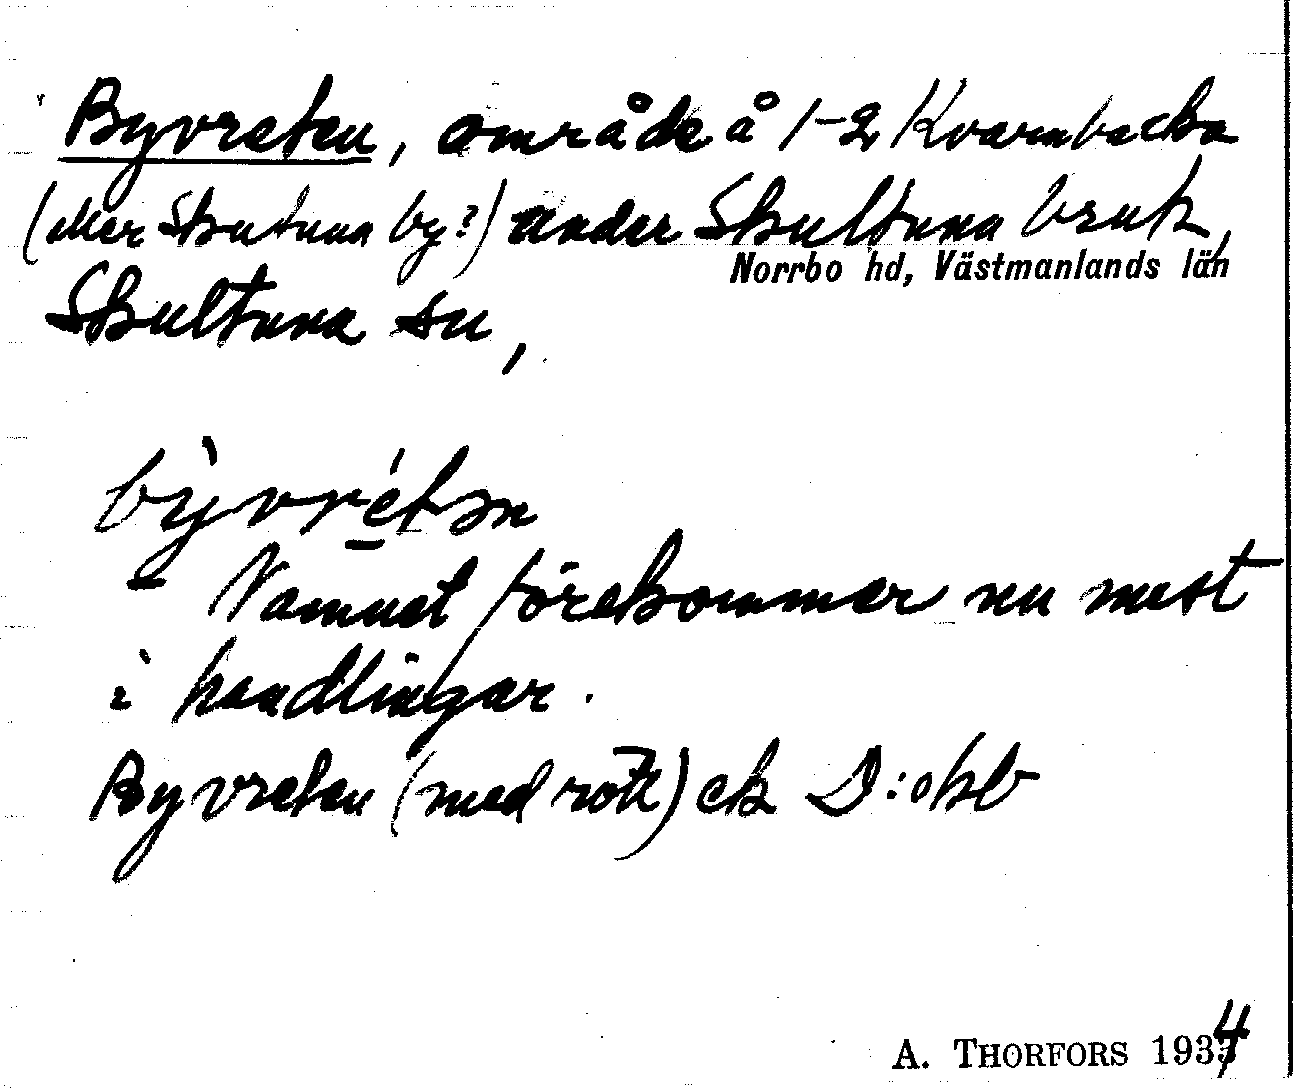 Byvreten, område å 1-2 Kvarnbacka
(eller Skutuna by?) under Skultuna bruk,
Norrbo hd, Västmanlands län
Skultuna sn,
bỳvrétən
Namnet förekommer nu mest
i handlingar.
Byvreten (med rött) ek D:o
A. THORFORS 1934